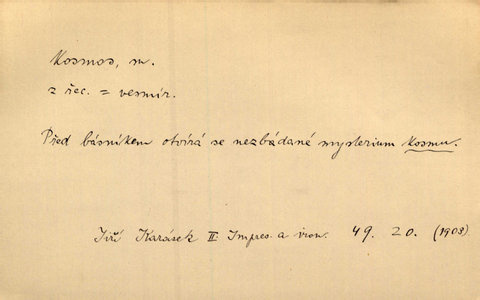 Kosmos, m.
z řec. = vesmír.
Před básníkem otvírá se nezbádané mysterium kosmu.
Jiří Karásek II. Impres. a iron. 49. 20. (1903)